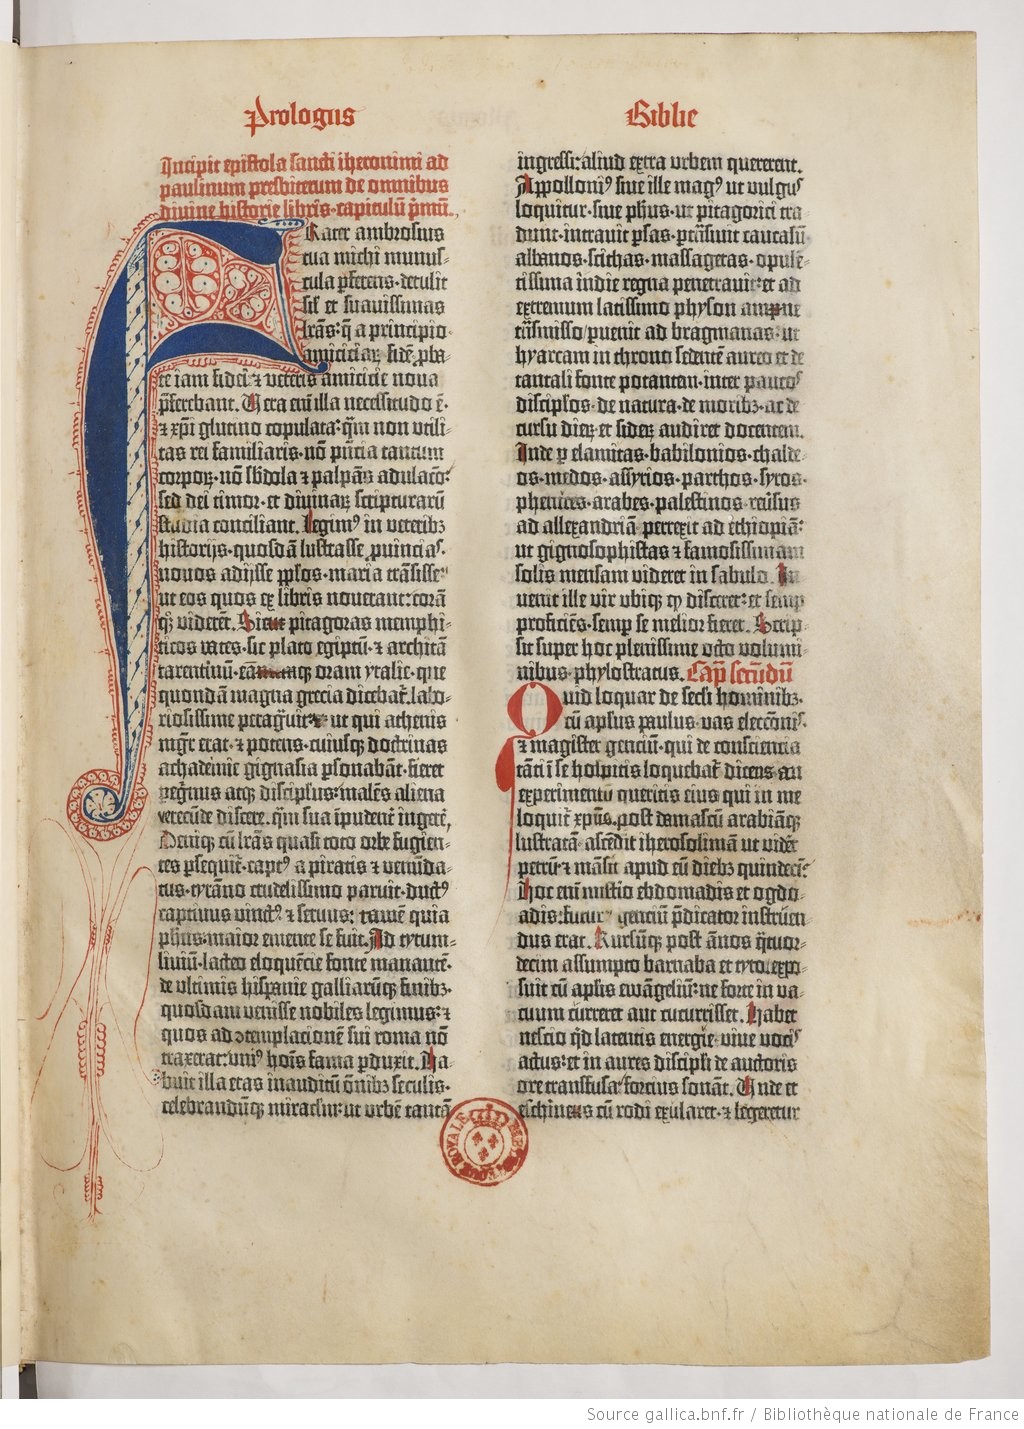 Prologus
Biblie
Incipit epistola sancti iheronimi ad
paulinum presbiterum de omnibus
divine historie libris · capitulū p̄mū.
Frater ambrosius
tua michi munus-
cula p̄ferens · detulit
sił et suavissimas
lr̄as · q̄ a principio
amiciciaꝝ fidē p̱ba-
te iam fidei · ⁊ veteris amicicie nova
p̄ferebant. Vera eni illa necessitudo ē ·
⁊ xp̄i glutino copulata: qm̄ non utili-
tas rei familiaris · nō p̄ncia tantum
corpoꝝ · nō sb̄dola ⁊ palpās adulaco:
sed dei timor · et divinaꝝ scripturarū
studia conciliant. Legim⁹ in veteribꝫ
historijs · quosdā lustrasse ꝓvincias ·
novos adijsse pp̱los · maria trāsisse ·
ut eos quos ex libris noverant: corā
qꝫ viderēt. Sicut pitagoras memphi-
ticos vates · sic plato egiptū · ⁊ architā
tarentinū · eāmqꝫ oram ytalie · que
quondā magna grecia dicebat̄: labo-
riosissime peragvit · ut qui athenis
mgr̄ erat · ⁊ potens · cuiusqꝫ doctrinas
achademie gignasia ꝑsonabāt · fieret
pegrinus atqꝫ discipłus: malēs aliena
verecūde discere · qm̄ sua īpudent̄ ingere ·
Deniqꝫ cū lr̄as quasi toto orbe fugien-
tes ꝑsequit̄ · capt⁹ a piratis ⁊ venūda-
tus · tyrāno crudelissimo paruit · duct⁹
captivus vinct⁹ ⁊ servus: tamē quia
ph̄us · maior emente se fuit. Ad tytum-
liviū · lacteo eloquēcie fonte manantē ·
de ultimis hispanie galliarūqꝫ finibꝫ ·
quosdam venisse nobiles legimus: ⁊
quos ad ꝯtemplacionē sui roma nō
traxerat: uni⁹ hoīs fama ꝑduxit. Ha-
buit illa etas inauditū oībꝫ seculis ·
celebrandūqꝫ miraclm: ut urbē tantā
ingressi: aliud extra urbem quererent.
Appolloni⁹ sive ille mag⁹ ut vulgus
loquitur · sive ph̄us · ut pitagorici tra-
dunt · intravit ꝑsas · ꝑtrāsivit caucasū ·
albanos · scithas · massagetas · opulē-
tissima indie regna penetravit: et ad
extremum latissimo physon amne
trāsmisso ꝑvenit ad bragmanas: ut
hyarcam in throno sedentē aureo et de
tantali fonte potantem · inter paucos
discipłos · de natura · de moribꝫ · ac de
cursu dieꝝ et sideꝝ audiret docentem.
Inde ꝑ elamitas · babilonios · chalde-
os · medos · assyrios · parthos · syros ·
phenices · arabes · palestinos · reūsus
ad allexandriā: perrexit ad ethiopiā:
ut gignosophistas ⁊ famosissimam
solis mensam videret in sabulo. In-
venit ille vir ubiqꝫ qꝫ disceret: et semꝑ
proficiēs · semꝑ se melior fieret. Scrip-
sit super hoc plenissime octo volumi-
nibus · phylostratus. Capł secūdū
Quid loquar de secłi hominibꝫ ·
cū apłus paulus · vas elecc̄onis ·
⁊ magister genciū · qui de consciencia
tāti ī se hospitis loquebat̄ dicens · an
experimentū queritis eius qui in me
loquit̄ xp̄us · post damascū arabiāqꝫ
lustratā · ascēdit iherosolimā ut vidēt
petrū ⁊ māsit apud eū diebꝫ quindecī ·
Hoc eni mistio ebdomadis et ogdo-
adis: futur⁹ genciū p̄dicator instruen-
dus erat. Rursūqꝫ post ānos q̄tuor-
decim assumpto barnaba et tyto · expo-
suit cū apłis ewāgeliū: ne forte in va-
cuum curreret aut cucurrisset. Habet
nescio qd latentis energie · vive vocis
actus: et in aures discipłi de auctoris
ore transfusa: fortius sonāt. Unde et
eschineus cū rodi exularet · ⁊ legeretur
Source gallica.bnf.fr / Bibliothèque nationale de France